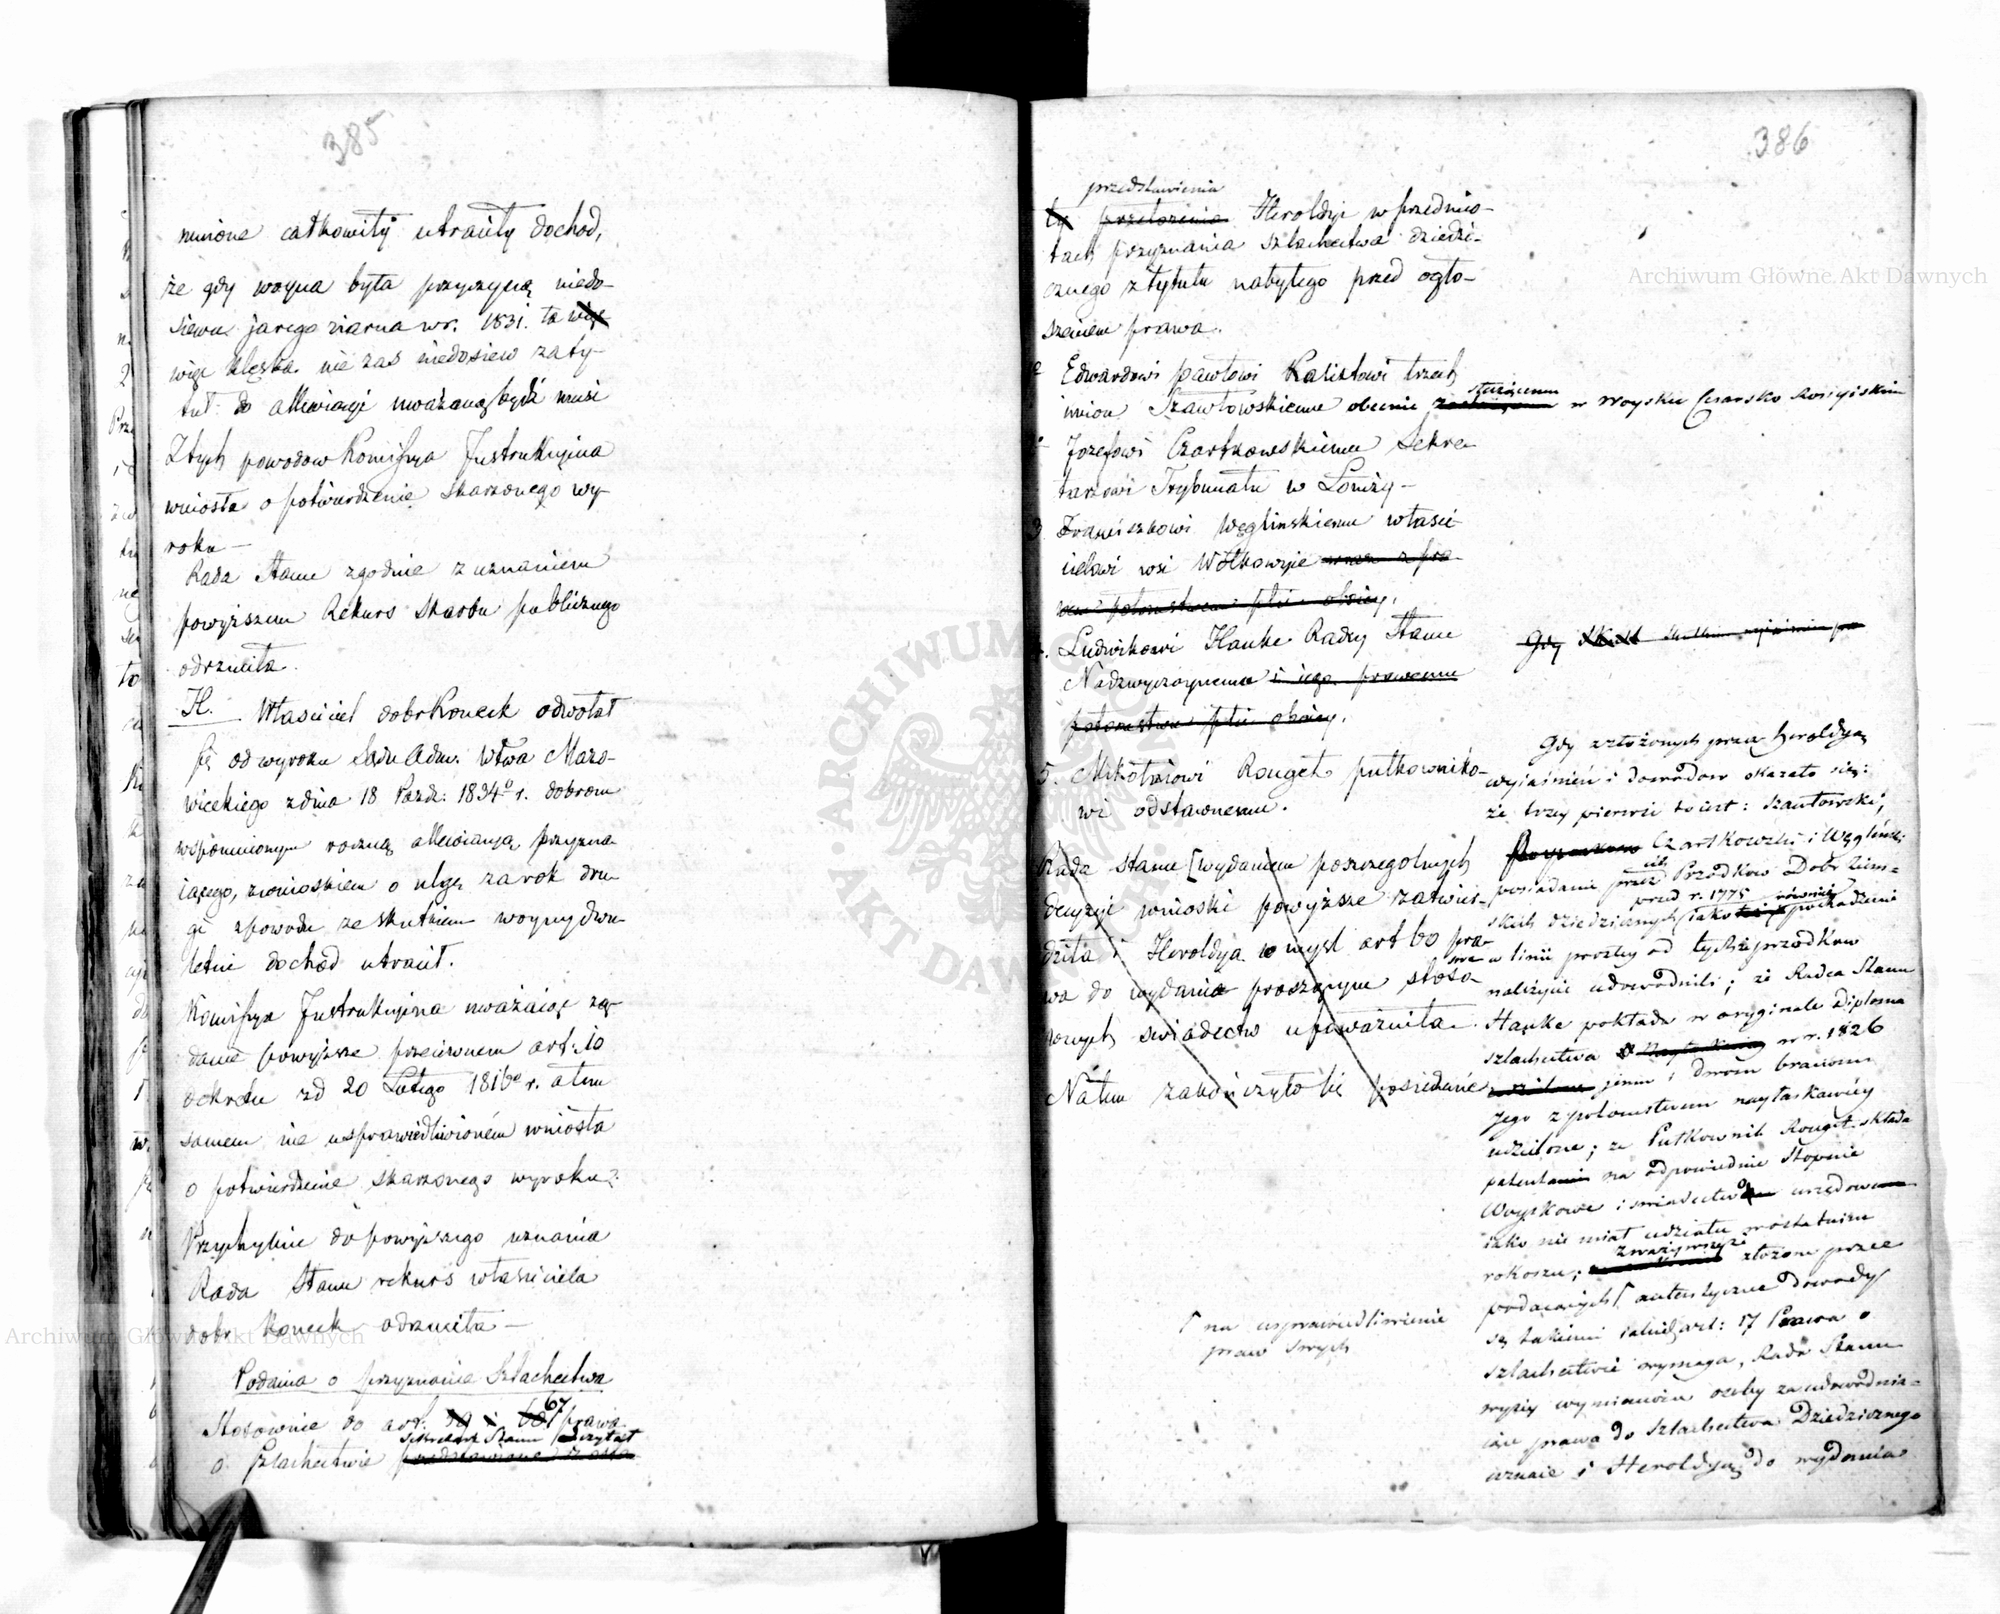 385
mnione całkowity utraciły dochod,
że gdy woyna była przyczyną niedo-
siewu jarego ziarna w r. 1831. ta więc
więc klęska nie zas niedosiew za ty-
tuł do allewiacyi uważaną bydź musi
Z tych powodow Kommissya Instrukcyjna
wniosła o potwierdzenie skarżonego wy-
roku —
Rada Stanu zgodnie z uznaniem
powyższem Rekurs Skarbu publicznego
odrzuciła.
H. Właściciel dobr Koneck odwołał
się od wyroku Sądu Adm. Wtwa Mazo-
wieckiego z dnia 18 Pazdz: 1834o r. dobrom
wspomnionym roczną allewiacyją przyzna-
iącego, z wnioskiem o ulgę za rok dru-
gi z powodu ze skutkiem woyny dwu-
letni dochód utracił.
Komissya Instrukcyjna uważaiąc żą-
danie powyższe przeciwnem art: 10
dekretu zd 20 Lutego 1816o r. a tem
samem nie usprawiedliwioném wniosła
o potwierdzenie skarżonego wyroku:
Przychylnie do powyższego uznania
Rada Stanu rekurs właściciela
dobr Koneck odrzuciła —
Podania o przyznanie Szlachectwa
67
Stosownie do art. i prawa
Sekretarz Stanu czytał
o Szlachectwie przedstawione
386
przedstawienia
ty przełożenia Heroldyi w przedmio-
tach przyznania szlachectwa dziedzi-
cznego z tytułu nabytego przed ogło-
szeniem prawa.
Edwardowi Pawłowi Kalixtowi trzech
służącemu
imion Szawłowskiemu obecnie w Woysku Cesarsko Rossyiskim
Jozefowi Czartkowskiemu Sekre-
tarzowi Trybunału w Łomży —
3 Franciszkowi Węglinskiemu właści-
cielowi wsi Wołkowyie wraz z pra-
wem potomstwem płci oboiey.
Ludwikowi Hauke Radcy Stanu
Nadzwyczaynemu i iego prawemu
potomstwu płci oboiey.
5. Mikołaiowi Rouget pułkowniko-
wi odstawnemu.
Rada Stanu [wydaniem poszczegolnych
decyzyi wnioski powyższe zatwier-
dziła i Heroldyą w myśl art 60 pra-
wa do wydania proszącym stoso-
wnych swiadectw upoważniła.
Na tem zakończyło się posiedzenie
Gdy skutkiem
Gdy z złożonych przez Heroldyą
wyiaśnień i dowodow okazało się:
że trzey pierwsi to iest: Szawłowski,
Czartkowski i Węgliński
ich
posiadanie przez Przodkow Dobr Ziem-
przed r. 1775 również
skich dziedzicznych iako pochodzenie
w linii prostey od tychże przodkow
należycie udowodnili; że Radca Stanu
Hauke pokłada w oryginale Diploma
szlachectwa w r. 1826
jemu i dwom braciom
jego z potomstwem naylaskawiey
udzielone; że Pułkownik Rouget składa
patentami na odpowiednie Stopnie
Woyskowe i swiadectwo urzędowe
iako nie miał udziału w ostatnim
zważywszy że
rokoszu; złożone przez
podaiących ſ autentyczne dowody
są takimi iakich art: 17 Prawa o
szlachectwie wymaga, Rada Stanu
wyżey wymienione osoby za udowodnia-
iące prawa do Szlachectwa Dziedzicznego
uznaie i Heroldyą do wydania
ſ na usprawiedliwienie
praw swych